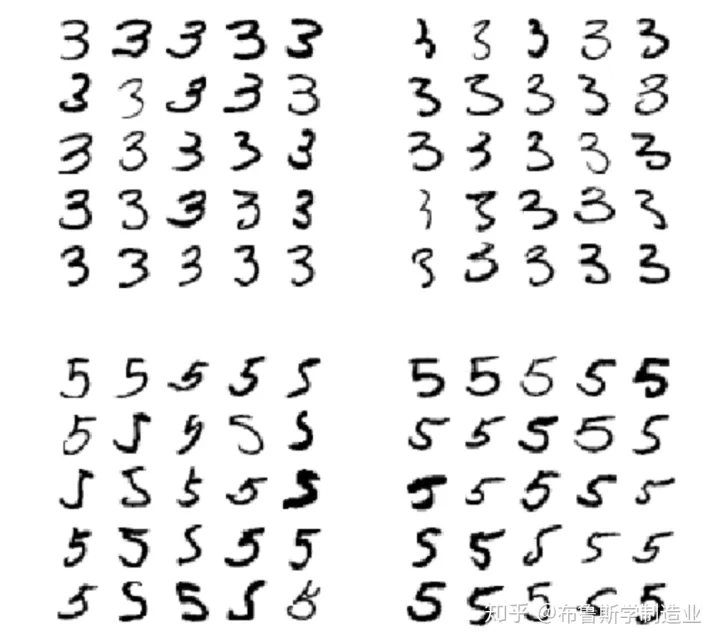 3 3 3 3 3 3 3 3 3 3
3 3 3 3 3 3 3 3 3 3
3 3 3 3 3 3 3 3 3 3
3 3 3 3 3 3 3 3 3 3
3 3 3 3 3 3 3 3 3 3
5 5 5 5 5 5 5 5 5 5
5 5 5 5 5 5 5 5 5 5
5 5 5 5 5 5 5 5 5 5
5 5 5 5 5 5 5 5 5 5
5 5 5 5 5 5 5 5 5 5
知乎 @布鲁斯学制造业